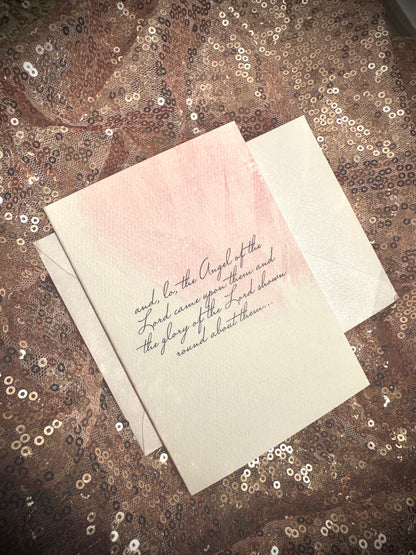 and, lo, the Angel of the
Lord came upon them and
the glory of the Lord shown
round about them...